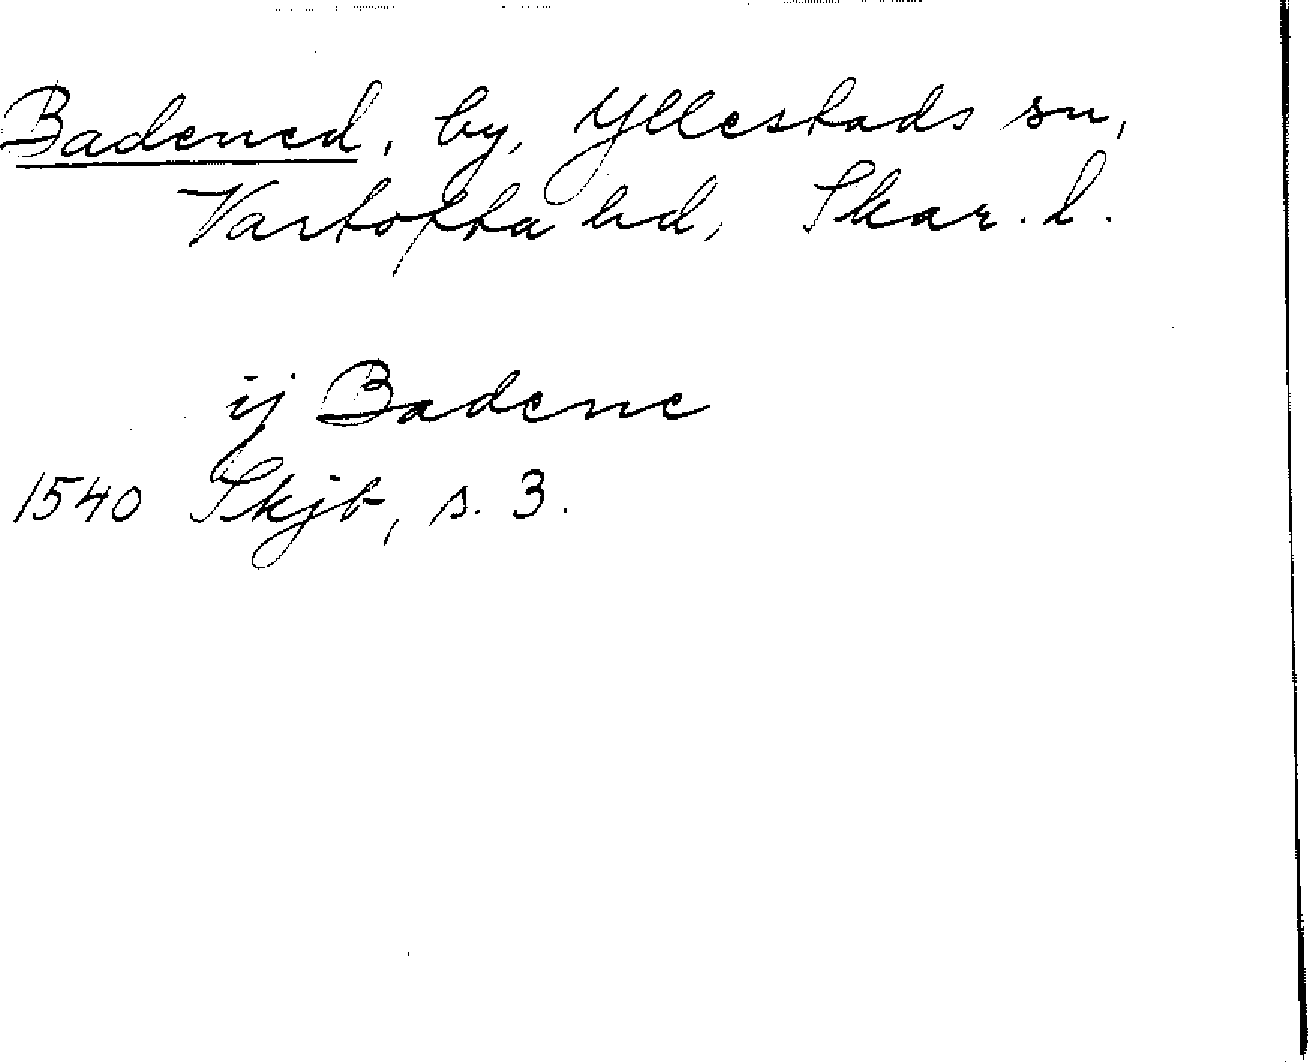 Badened, by, Yllestads sn,
Vartofta hd, Skar. l.
ij Badene
1540 Skjb, s. 3.